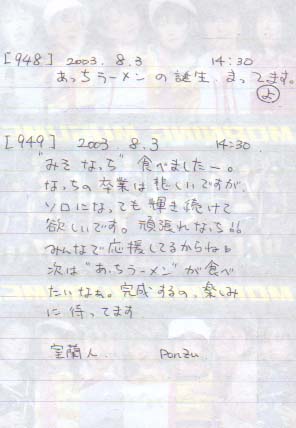 [948] 2003. 8.3 14:30
あっちラーメンの誕生、まってます。
よ
[949] 2003. 8.3 14:30
"みそ なっち" 食べましたー。
なっちの卒業は悲しいですが、
ソロになっても輝き続けて
欲しいです。頑張れなっち!!
みんなで応援してるからねぉ
次は"あっちラーメン"が食べ
たいなぁ。完成するの、楽しみ
に待ってます
室蘭人 Ponzu